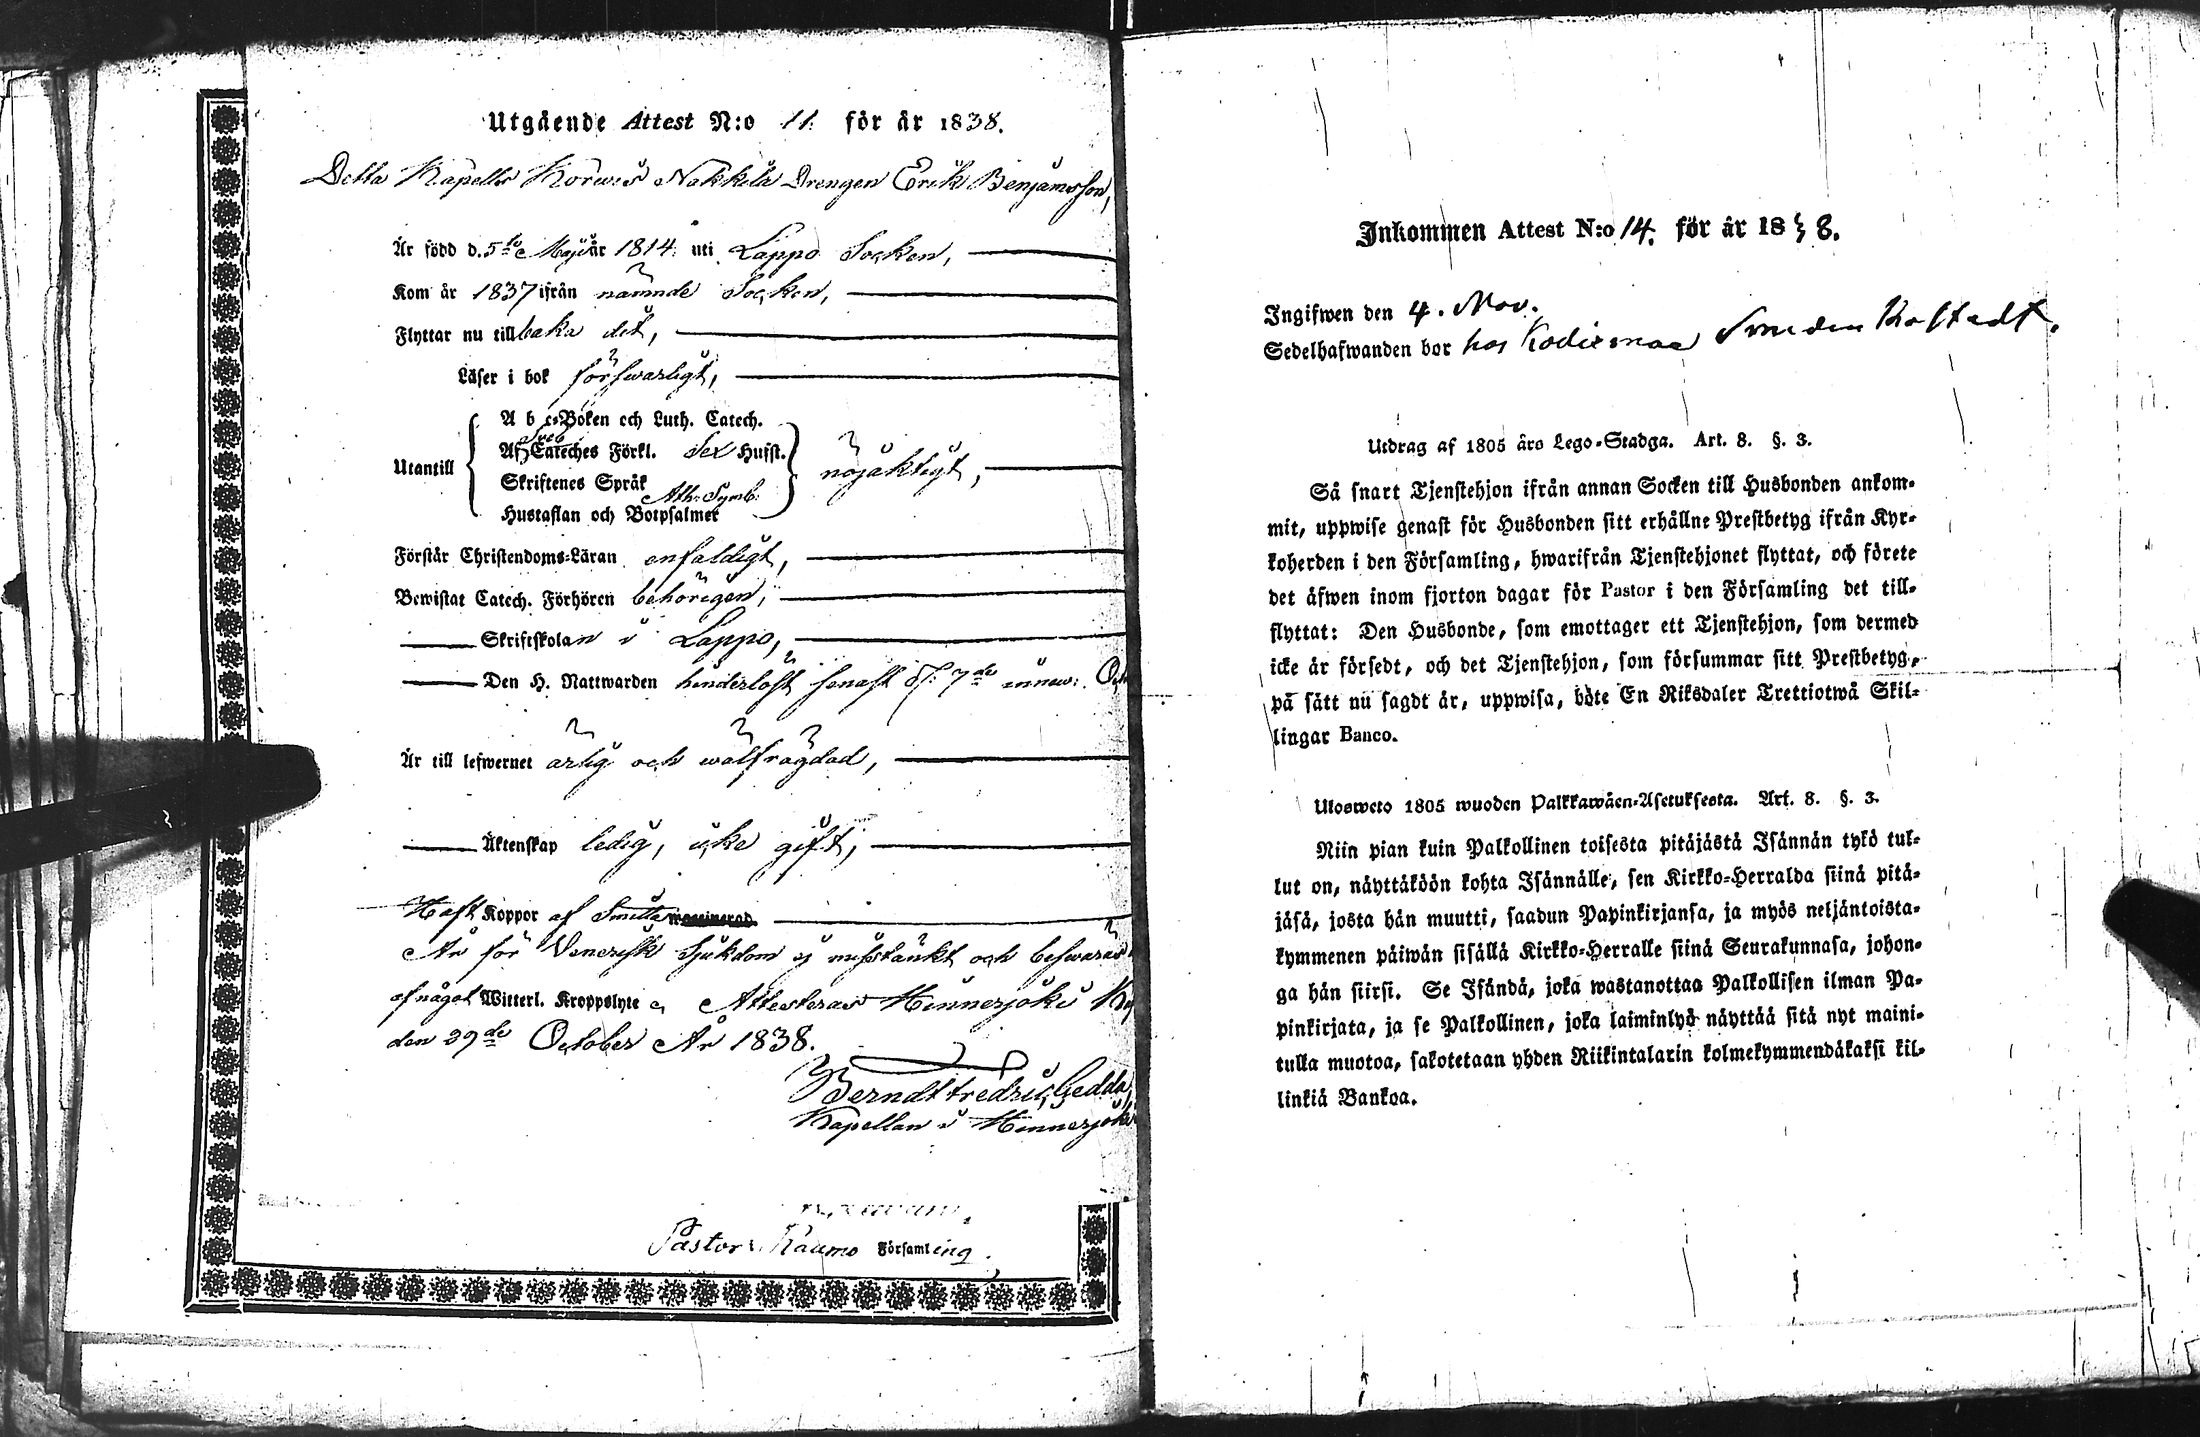 Utgående Attest N:o 11. för år 1838.
Detta Kapells Korwis Nakkila Drengen Erik Benjamsson,
Är född d. 5te Maji år 1814. uti Lappo Socken,
Kom år 1837 ifrån nämnde Socken,
Flyttar nu tillbaka dit,
Läser i bok försvarligt,
A b c-Boken och Luth. Catech.
Af Sveb Cateches Förkl. Sex Husst.
Utantill
Skriftenes Språk Ath: Symb:
nöjaktigt,
Hustaflan och Botpsalmer
Förstår Christendoms-Läran enfaldigt,
Bewistat Catech. Förhören behörigen,
Skriftskolan i Lappo,
Den H. Nattwarden hinderlöst senast d. 7de innew:
Är till lefwernet ärlig och wälfrägdad,
Äktenskap ledig, icke gift,
Haft Koppor af Smitta waccinerad
Är för Venerisk Sjukdom ej misstänkt och beswäras
af något Witterl. Kroppslyte Attesteras Hinnerjoki
den 29de October År 1838.
Berndt Fredric Gedda,
Kapellan i Hinnerjoki
Pastor i Raumo Församling.
Inkommen Attest N:o 14. för år 1838.
Ingifwen den 4. Nov.
Sedelhafwanden bor hos
Utdrag af 1805 års Lego-Stadga. Art. 8. §. 3.
Så snart Tjenstehjon ifrån annan Socken till Husbonden ankom-
mit, uppwise genast för Husbonden sitt erhållne Prestbetyg ifrån Kyr-
koherden i den Församling, hwarifrån Tjenstehjonet flyttat, och förete
det äfwen inom fjorton dagar för Pastor i den Församling det till-
flyttat: Den Husbonde, som emottager ett Tjenstehjon, som dermed
icke är försedt, och det Tjenstehjon, som försummar sitt Prestbetyg,
på sätt nu sagdt är, uppwisa, böte En Riksdaler Trettiotwå Skil-
lingar Banco.
Ulosweto 1805 wuoden Palkkawäen-Asetuksesta. Art. 8. §. 3.
Niin pian kuin Palkollinen toisesta pitäjästä Isännän tykö tul-
lut on, näyttäköön kohta Isännälle, sen Kirkko-Herralda siinä pitä-
jäsä, josta hän muutti, saadun Papinkirjansa, ja myös neljäntoista-
kymmenen päiwän sisällä Kirkko-Herralle siinä Seurakunnasa, johon-
ga hän siirsi. Se Isändä, joka wastanottaa Palkollisen ilman Pa-
pinkirjata, ja se Palkollinen, joka laiminlyö näyttää sitä nyt maini-
tulla muotoa, sakotetaan yhden Riikintalarin kolmekymmendäkaksi kil-
linkiä Bankoa.